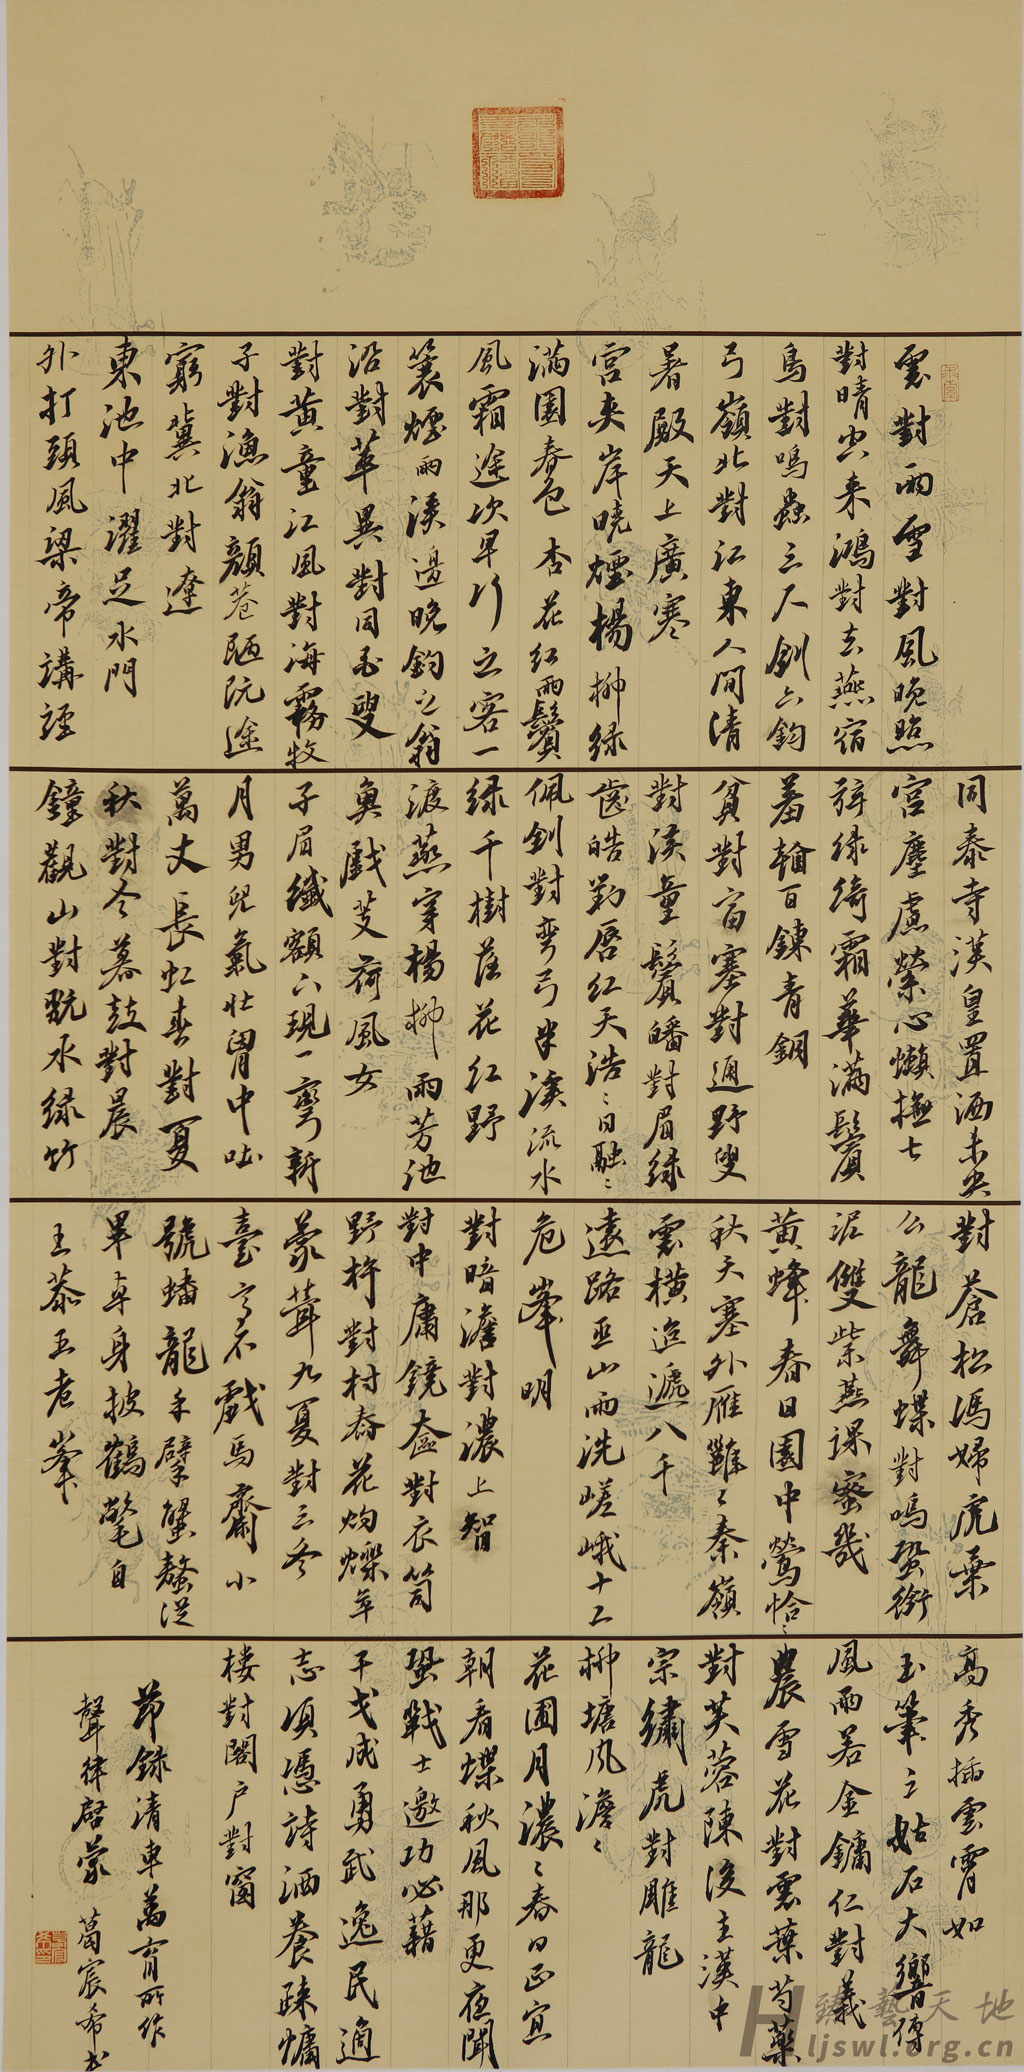 雲對雨雪對風晚照
對晴空来鴻對去燕宿
鳥對鳴蟲三尺劍六鈞
弓嶺北對江東人間清
暑殿天上廣寒
宮夾岸曉煙楊柳綠
滿園春色杏花紅兩鬢
風霜途次早行之客一
蓑煙雨溪邊晚釣之翁
沿對革異對同白叟
對黃童江風對海霧牧
子對漁翁顏巷陋阮途
窮冀北對遼
東池中濯足水門
外打頭風梁帝講經
同泰寺漢皇置酒未央
宮塵慮縈心懶撫七
弦綠綺霜華滿鬢
羞看百鍊青銅
貧對富塞對通野叟
對溪童鬢皤對眉綠
齒皓對唇紅天浩〻日融〻
佩劍對彎弓半溪流水
綠千樹落花紅野
渡燕穿楊柳雨芳池
魚戲芰荷風女
子眉纖額下現一彎新
月男兒氣壯胸中吐
萬丈長虹春對夏
秋對冬暮鼓對晨
鐘觀山對玩水綠竹
對蒼松馮婦虎葉
公龍舞蝶對鳴蛩銜
泥雙紫燕課蜜幾
黃蜂春日園中鶯恰〻
秋天塞外雁雝〻秦嶺
雲橫迢遞八千
遠路巫山雨洗嵯峨十二
危峯明
對暗澹對濃上智
對中庸鏡奩對衣笥
野杵對村舂花灼爍草
蒙茸九夏對三冬
臺高名戲馬齋小
號蟠龍手擘蟹螯從
畢卓身披鶴氅自
王恭五老峯
高秀插雲霄如
玉筆三姑石大響傳
風雨若金鏞仁對義
農雪花對雲葉芍藥
對芙蓉陳後主漢中
宗繡虎對雕龍
柳塘風澹〻
花圃月濃〻春日正宜
朝看蝶秋風那更夜聞
蛩戰士邀功必藉
干戈成勇武逸民適
志須憑詩酒養疎慵
樓對閣戶對窗
節錄清車萬育所作
聲律啓蒙 葛宸希书
臻藝天地
Hljswl.org.cn